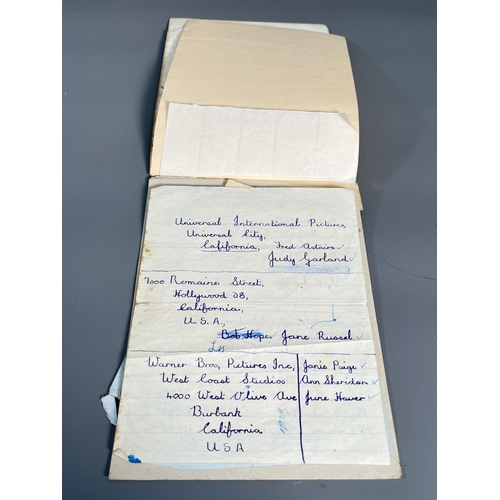 Universal International Pictures,
Universal City,
California, Fred Astaire ✓
Judy Garland ✓
7000 Romaine Street,
Hollywood 38,
California,
U.S.A.,
Bob Hope. Jane Russel.
Warner Bros, Pictures Inc, Janis Paige ✓
West Coast Studios Ann Sheridan ✓
4000 West Olive Ave June Haver ✓
Burbank
California
USA